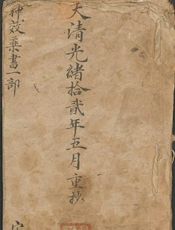 大清光緒拾貳年五月重抄
神效薬書一部